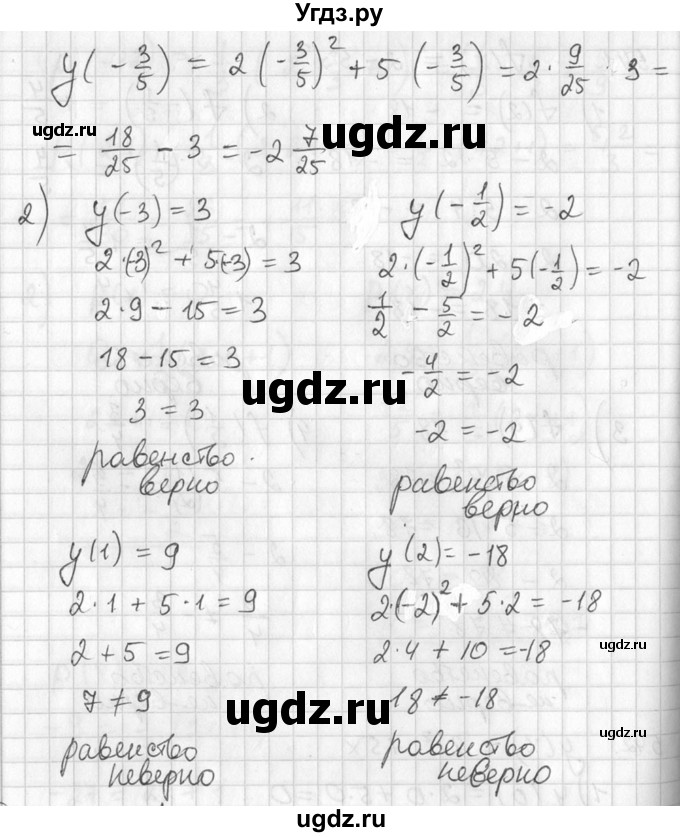 Угдз.ру
y(-3/5) = 2(-3/5)² + 5(-3/5) = 2·9/25 · 3 =
= 18/25 - 3 = -2 7/25
ugdz.ru ugdz.ru
ugdz.ru
2) y(-3) = 3
2·(-3)² + 5·(-3) = 3
2·9 - 15 = 3
18 - 15 = 3
3 = 3
равенство
верно
y(-1/2) = -2
2·(-1/2)² + 5(-1/2) = -2
1/2 - 5/2 = -2
-4/2 = -2
-2 = -2
равенство
верно
ugdz.ru
ugdz.ru
y(1) = 9
2·1 + 5·1 = 9
2 + 5 = 9
7 ≠ 9
равенство
неверно
y(2) = -18
2·(-2)² + 5·2 = -18
2·4 + 10 = -18
18 ≠ -18
равенство
неверно
ugdz.ru
ugdz.ru
ugdz.ru
ugdz.ru
ugdz.ru